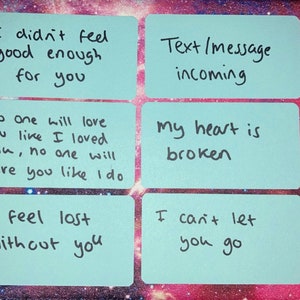 didn't feel
good enough
for you
Text/message
incoming
one will love
you like I loved
, no one will
you like I do
My heart is
broken
feel lost
without you
I can't let
you go